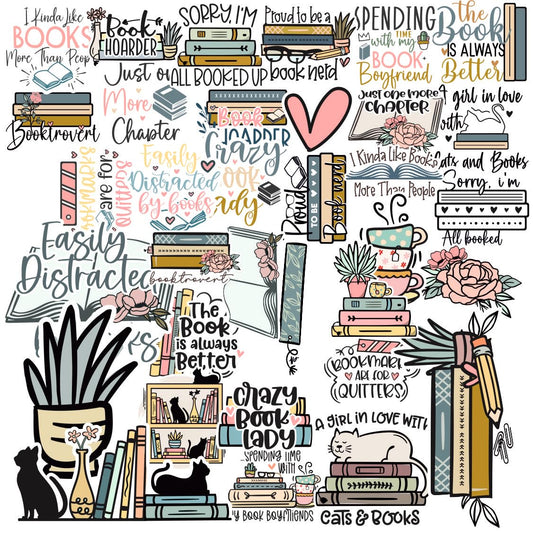 I Kinda Like
BOOKS
More Than Peop
Book
HOARDER
Just
SORRY, I'M
ALL BOOKED UP
Proud to be a
book nerd
SPENDING
TIME
with my
BOOK
Boyfriend
The
BOOK
IS ALWAYS
Better
Booktrovert
More
Chapter
Book
HOARDER
Crazy
Just one more
CHAPTER
a girl in love
with
Cats and Books
BOOKMARKS
are for
QUITTERS
Easily
Distracted
by books
Lady
Proud
TO BE
Book nerd
I Kinda Like Books
More Than People
Sorry, i'm
All booked
"Easily
Distracted
booktrovert
The
Book
is always
Better
BOOKMARK
ARE FOR
QUITTERS
CRAZY
BOOK
LADY
SPENDING TIME
WITH
y BOOK BOYFRIENDS
A GIRL IN LOVE WITH
CATS & BOOKS